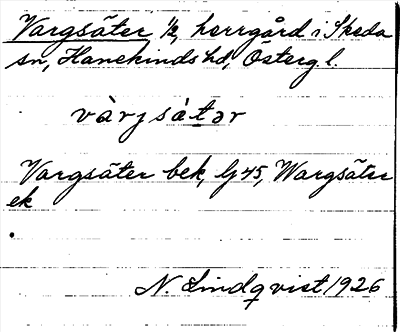 Vargsäter ½, herrgård i Skeda
sn, Hanekinds hd, Österg. l.
va̍rjsa̍tər
Vargsäter bek, G45, Wargsäter
ek
N. Lindqvist 1926